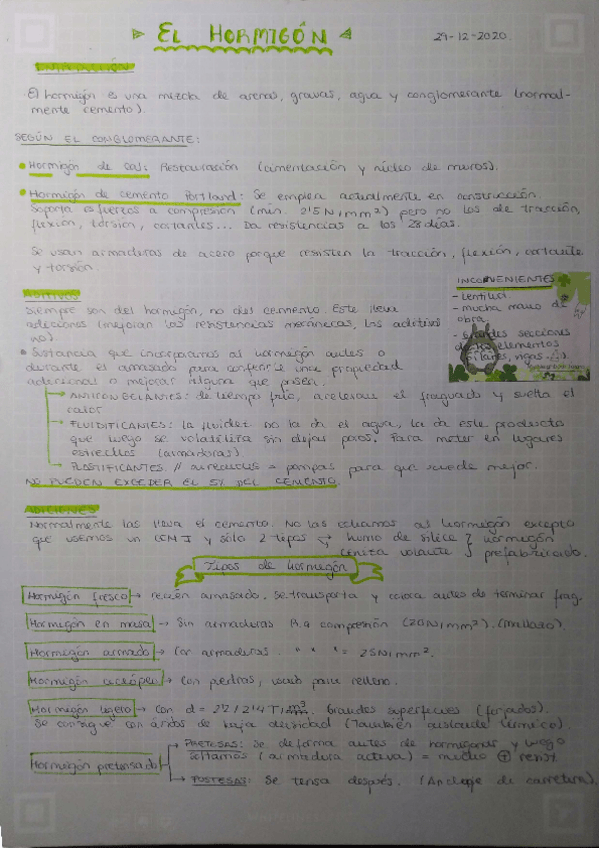 EL HORMIGÓN
29-12-2020.
INTRODUCCIÓN
· El hormigón es una mezcla de arenas, gravas, agua y conglomerante (normal-
mente cemento).
SEGÚN EL CONGLOMERANTE:
• Hormigón de cal: Restauración (cimentación y núcleo de muros).
• Hormigón de cemento Portland: Se emplea actualmente en construcción.
Soporta esfuerzos a compresión (mín. 25N/mm²) pero no los de tracción,
flexión, torsión, cortantes... Da resistencias a los 28 días.
Se usan armaduras de acero porque resisten la tracción, flexión, cortante
y torsión.
INCONVENIENTES
- Lentitud
- mucha mano de
obra.
- Grandes secciones
de los elementos
(pilares, vigas...).
ADITIVOS
Siempre son del hormigón, no del cemento. Este lleva
adiciones (mejoran las resistencias mecánicas, los aditivos
no)
• Sustancia que incorporamos al hormigón antes o
durante el amasado para conferirle una propiedad
adicional o mejorar alguna que posea.
ANTICONGELANTES: de tiempo frío, aceleran el fraguado y suelta el
calor
FLUIDIFICANTES: la fluidez no la da el agua, la da este producto
que luego se volatiliza sin dejar poros. Para meter en lugares
estrechos (armaduras).
PLASTIFICANTES // aireantes = pompas para que ruede mejor.
NO PUEDEN EXCEDER EL 5% DEL CEMENTO.
ADICIONES
Normalmente las lleva el cemento. No las echamos al hormigón excepto
que usemos un CEM I y sólo 2 tipos → humo de sílice } hormigón
ceniza volante } prefabricado.
Tipos de hormigón
Hormigón fresco → recién amasado. Se transporta y coloca antes de terminar frag.
Hormigón en masa → Sin armaduras R.a compresión (20N/mm²). (malazo).
Hormigón armado → Con armaduras. " " " = 25N/mm².
Hormigón ciclópeo → Con piedras, usado para relleno.
Hormigón ligero → Con d = Grandes superficies (forjados).
Se consigue con áridos de baja densidad (También aislante térmico).
Hormigón pretensado
→ PRETESAS: Se deforma antes de hormigonar y luego
soltamos (armadura activa) = mucho + resist.
→ POSTESAS: Se tensa después. (Anclaje de carretera).